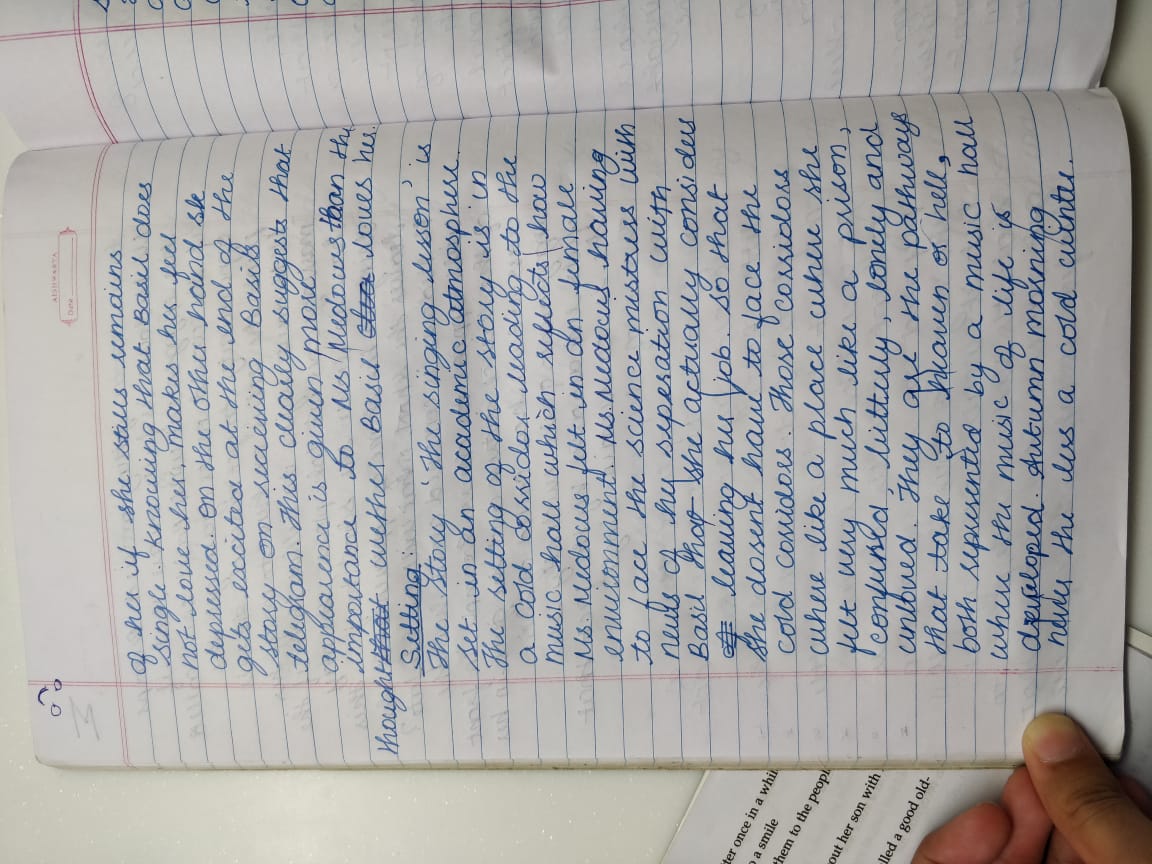 AISHWARYA
Date
of her if she stius remains
single. knowing that Basil does
not love her, makes her feel
depressed. on the other hand she
gets excited at the end of the
story on recieving Basil's
telegram. This clearly suggests that
appearence is given more
importance to Ms Meadows than the
though wether Basil loves her.
Setting
The story 'The singing lesson', is
set in an academic atmosphere.
The setting of the story is in
a cold corridor leading to the
music hall which reflects how
Ms. Medows felt in an female
enviironment. Ms. Meadows having
to face the science mistress with
news of her seperation with
Basil that she actually considers
leaving her job. so that
she dosent have to face the
cold coridoors. Those corridors
where like a place where she
felt very much like a prison,
confused, bitterly, lonely and
unloved. They are the pathways
that take to heaven or hell,
both represented by a music hall
where the music of life is
developed. Autumn morning
novel the less a cold winter.
ter once in a whi
a smile
them to the peopl
out her son with
lled a good old-